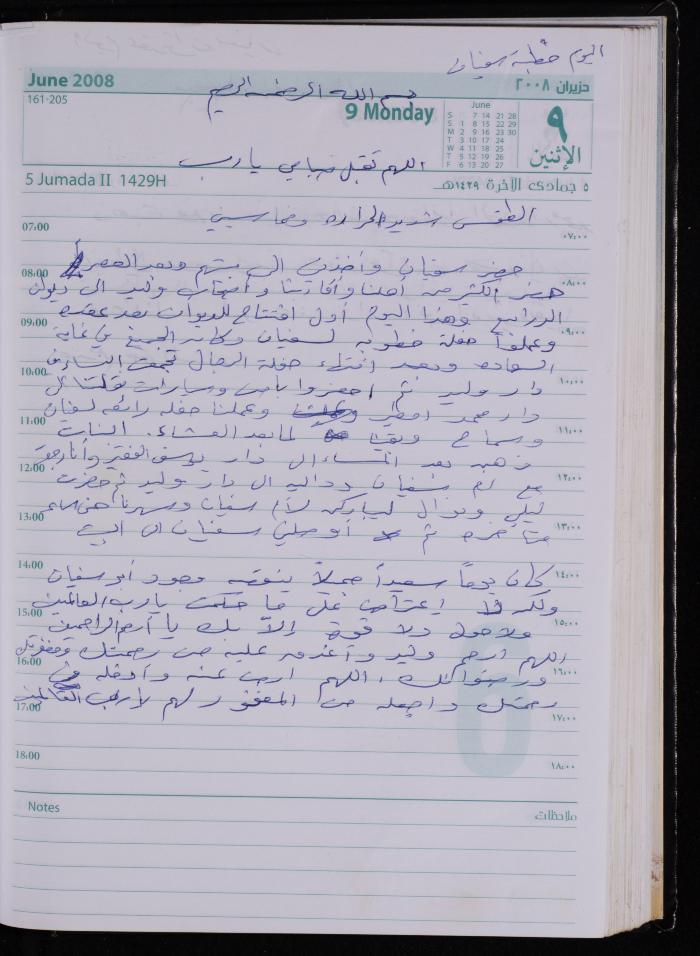 اليوم خطبة سفيان
June 2008
حزيران ٢٠٠٨
161-205
بسم الله الرحمن الرحيم
9 Monday
June
S 7 14 21 28
S 1 8 15 22 29
M 2 9 16 23 30
T 3 10 17 24
W 4 11 18 25
T 5 12 19 26
F 6 13 20 27
٩
الإثنين
اللهم تقبل صيامي يا رب
5 Jumada II 1429H
٥ جمادى الآخرة ١٤٢٩هـ
الطقس شديد الحرارة
07:00 ٠٧:٠٠
حضر سفيان وأخذني الى بيتهم وبعد العصر
08:00 ٠٨:٠٠
حضر الكثير من أهلنا وأقاربنا وأصحاب وليد الى ديوان
وهذا اليوم أول افتتاح للديوان بعد
09:00 ٠٩:٠٠
وعملوا حفلة خطوبة لسفيان وكان الجميع في غاية
السعادة وبعد انتهاء حفلة الرجال تجمعت النساء في
10:00 ١٠:٠٠
دار وليد ثم احضروا باص وسيارات نقلتنا الى
دار محمد وعملنا حفلة رائعة لسفيان
11:00 ١١:٠٠
وسماح وبقينا لما بعد العشاء. البنات
ذهبن بعد المساء الى دار يوسف الفقير وأنا رجعت
12:00 ١٢:٠٠
مع ام سفيان وداليه الى دار وليد ثم حضرت
ليلى ونوال ليباركن لأم سفيان وسهرنا حتى ساعة
13:00 ١٣:٠٠
متأخرة ثم أوصلني سفيان الى البيت
14:00 ١٤:٠٠
كان يوماً سعيداً جميلاً ينقصه وجود أبو سفيان
ولكن لا اعتراض على ما حكمت يا رب العالمين
15:00 ١٥:٠٠
ولا حول ولا قوة إلا بك يا أرحم الراحمين
اللهم ارحم وليد وأغدق عليه من رحمتك ومغفرتك
16:00 ١٦:٠٠
ورضوانك. اللهم ارض عنه وأدخله في
رحمتك واجعله من المغفور لهم يا رب العالمين
17:00 ١٧:٠٠
18:00 ١٨:٠٠
Notes
ملاحظات